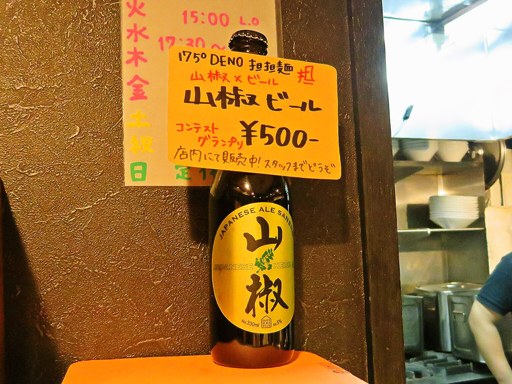 火
水
木
金
土
日
15:00 L.O
17:30〜
定
175° DENO 担担麺
担
山椒×ビール
山椒ビール
コンテスト
グランプリ
¥500-
店内にて販売中!スタッフまでどうぞ
JAPANESE ALE SAN
山
椒